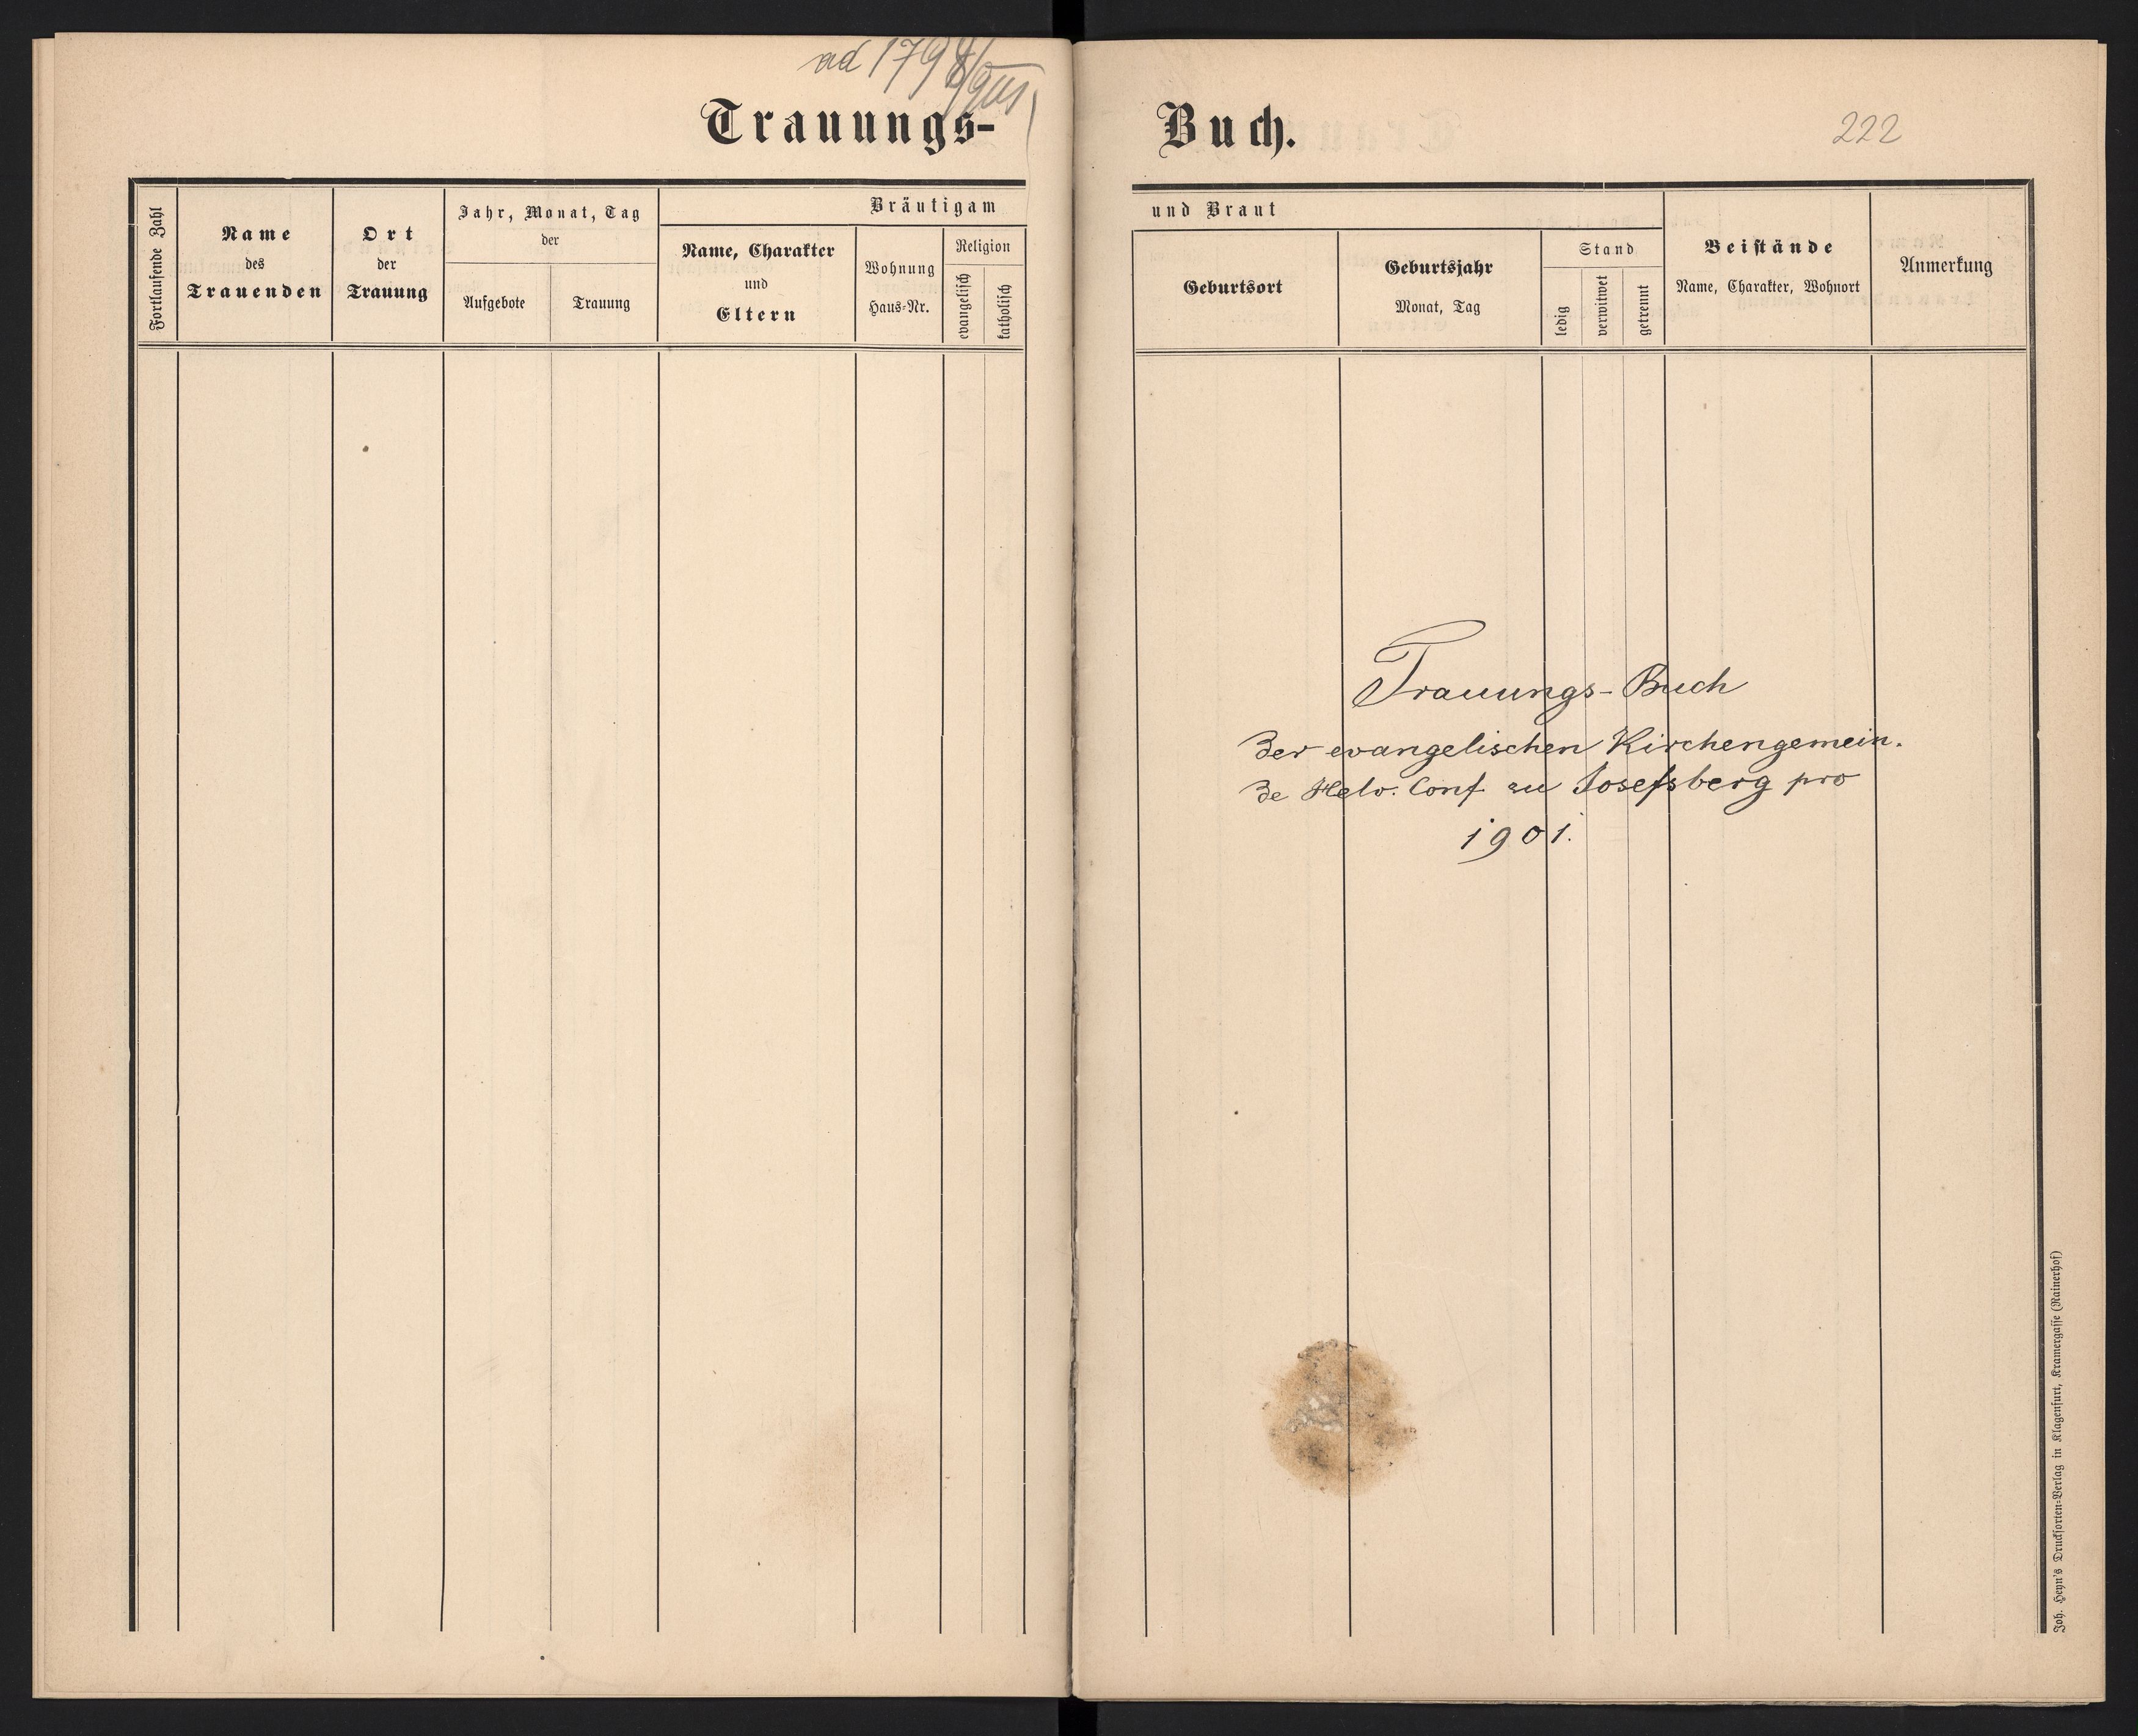 Trauungs-
Buch.
222
Fortlaufende Zahl
Name
des
Trauenden
Ort
der
Trauung
Jahr, Monat, Tag
der
Aufgebote
Trauung
Bräutigam
Name, Charakter
und
Eltern
Wohnung
Haus-Nr.
Religion
evangelisch
katholisch
und Braut
Geburtsort
Geburtsjahr
Monat, Tag
Stand
ledig
verwitwet
getrennt
Beistände
Name, Charakter, Wohnort
Anmerkung
Trauungs-Buch
der evangelischen Kirchengemein.
de Helv. Conf zu Josefsberg pro
1901.
Joh. Heyn's Drucksorten-Verlag in Klagenfurt, Kramergasse (Rainerhof)